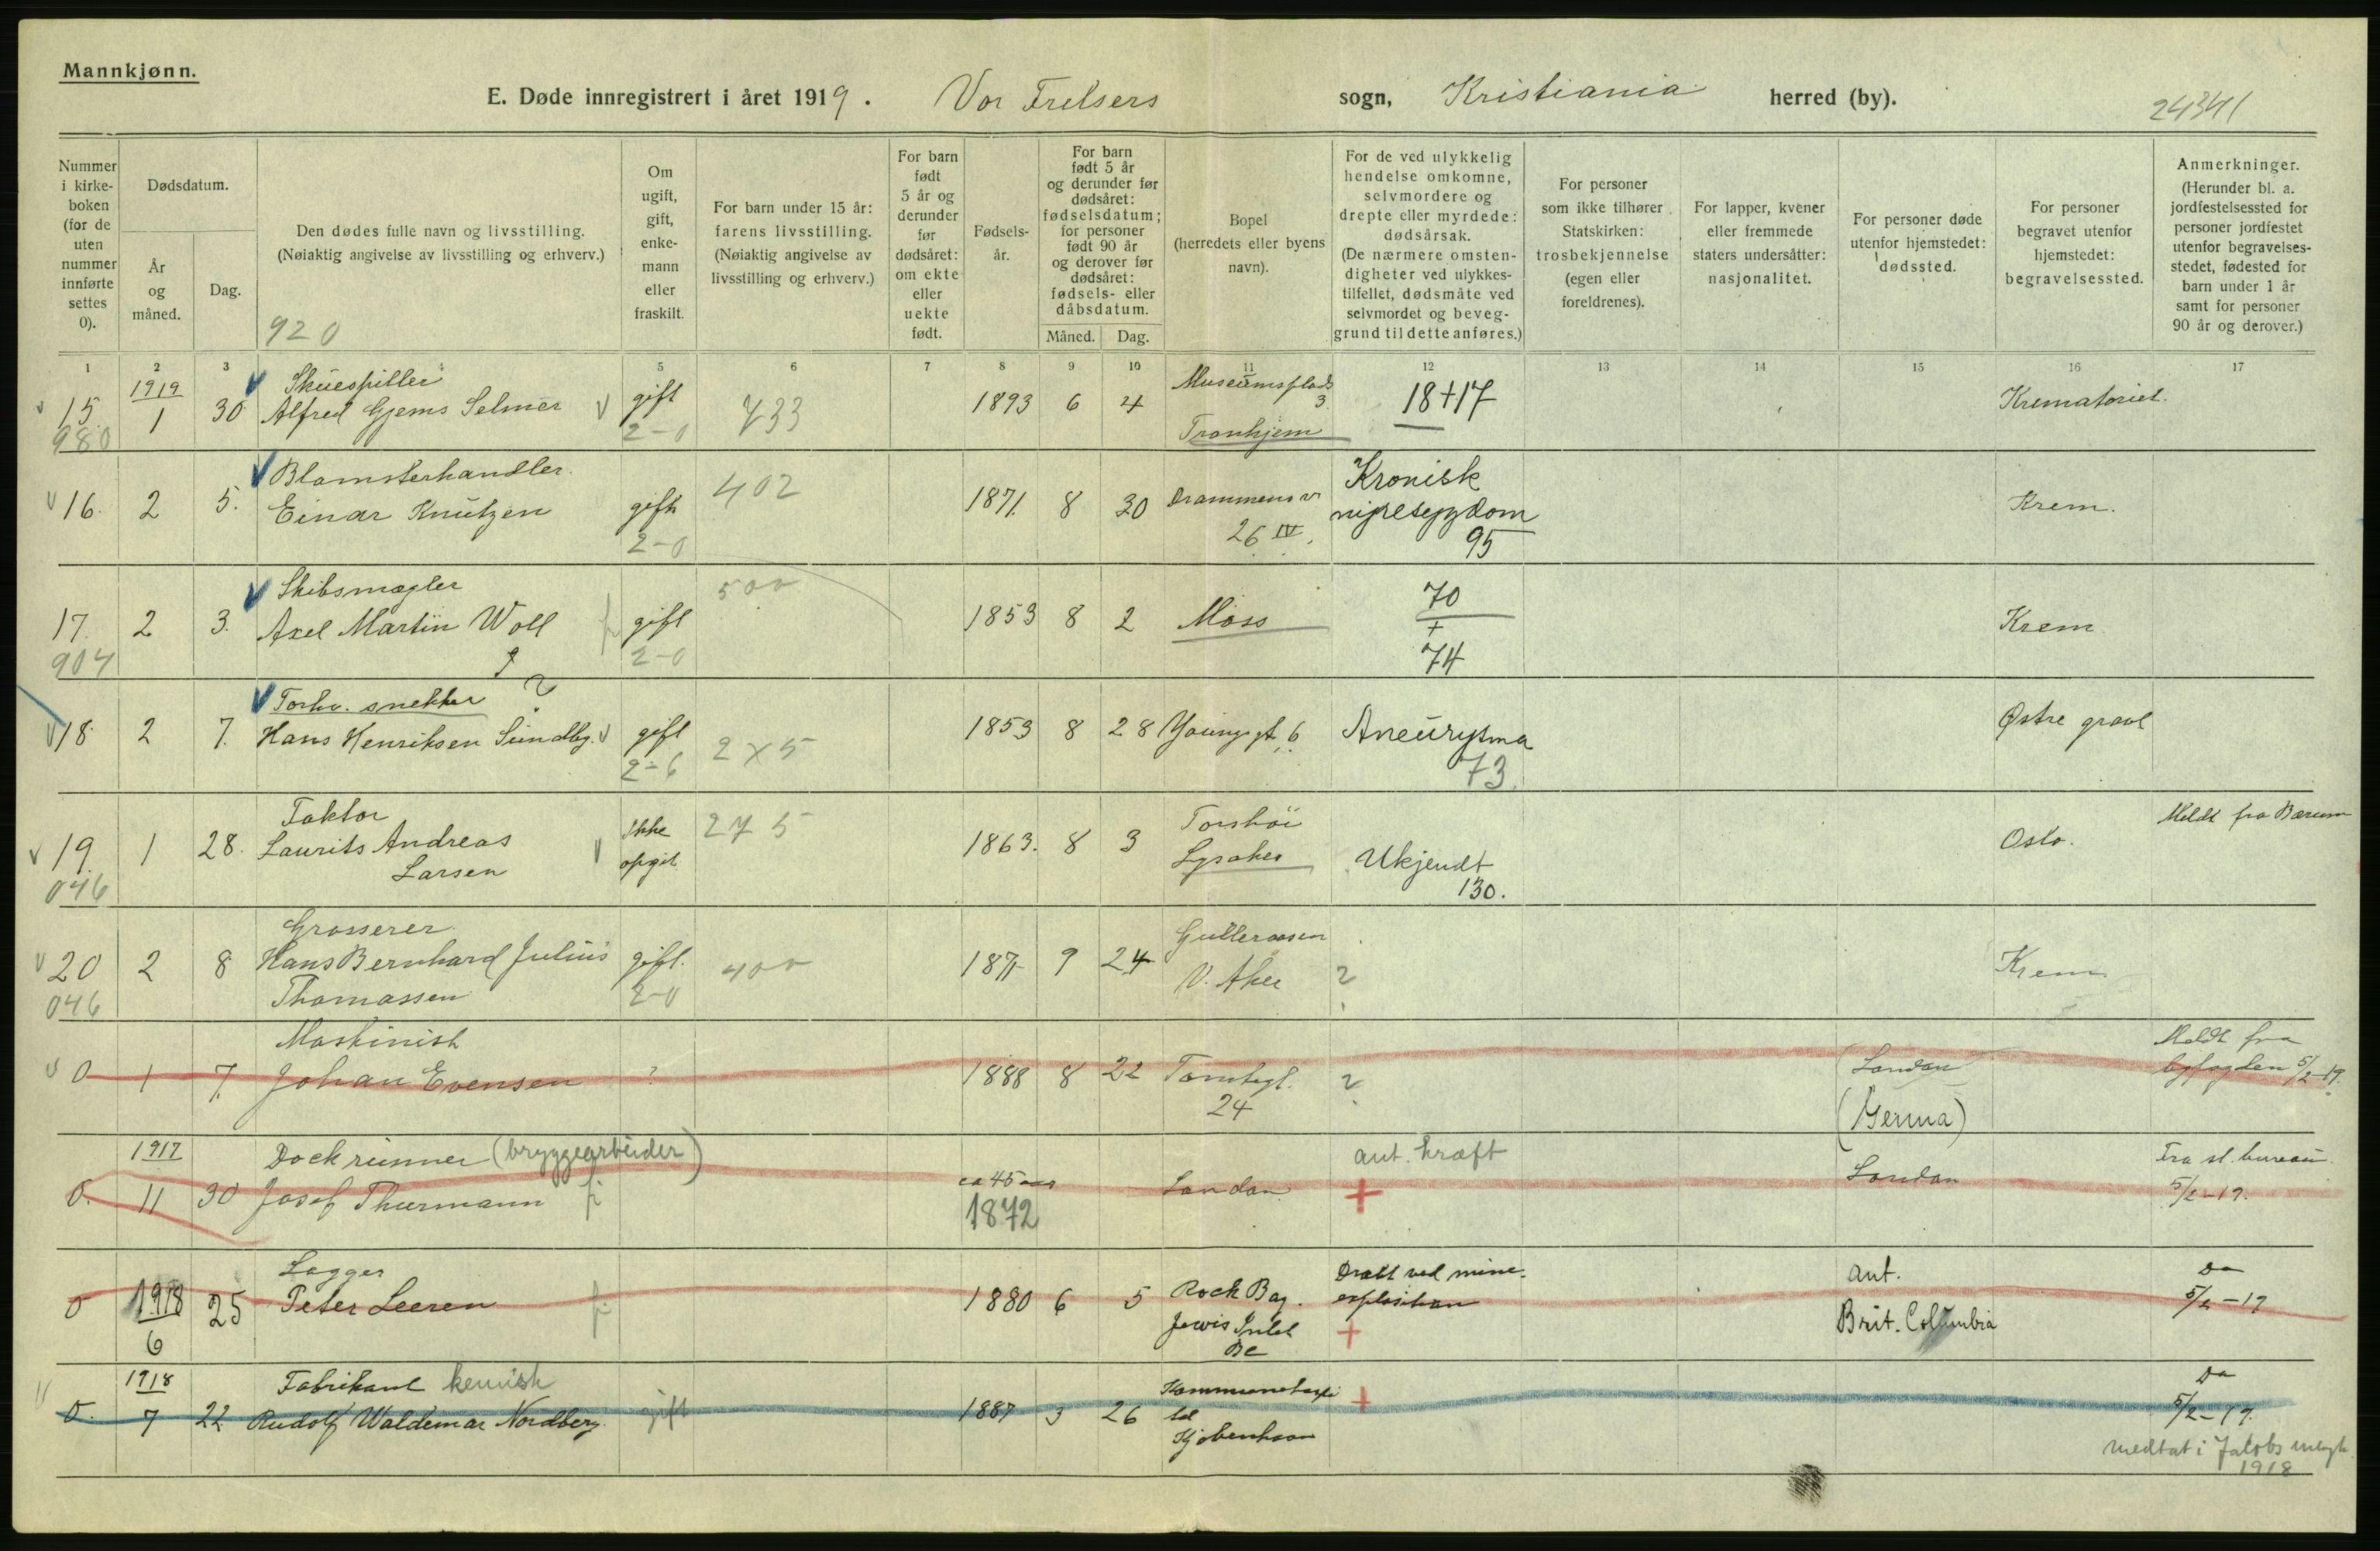 Mannkjønn.
E. Døde innregistrert i året 1919. Vor Frelsers sogn, Kristiania herred (by).
24341
Nummer i kirke-boken (for de uten nummer innførte settes 0).
Dødsdatum.
År og måned.
Dag.
Den dødes fulle navn og livsstilling.
(Nøiaktig angivelse av livsstilling og erhverv.)
920
Om ugift, gift, enke-mann eller fraskilt.
For barn under 15 år: farens livsstilling.
(Nøiaktig angivelse av livsstilling og erhverv.)
For barn født 5 år og derunder før dødsåret: om ekte eller uekte født.
Fødsels-år.
For barn født 5 år og derunder før dødsåret: fødselsdatum; for personer født 90 år og derover før dødsåret: fødsels- eller dåbsdatum.
Måned. Dag.
Bopel (herredets eller byens navn).
For de ved ulykkelig hendelse omkomne, selvmordere og drepte eller myrdede: dødsårsak.
(De nærmere omsten-digheter ved ulykkes-tilfellet, dødsmåte ved selvmordet og beveg-grund til dette anføres.)
For personer som ikke tilhører Statskirken: trosbekjennelse (egen eller foreldrenes).
For lapper, kvener eller fremmede staters undersåtter: nasjonalitet.
For personer døde utenfor hjemstedet: dødssted.
For personer begravet utenfor hjemstedet: begravelsessted.
Anmerkninger.
(Herunder bl. a. jordfestelsessted for personer jordfestet utenfor begravelses-stedet, fødested for barn under 1 år samt for personer 90 år og derover.)
1 2 3 4 5 6 7 8 9 10 11 12 13 14 15 16 17
1919 Skuespiller Museumsplads 3
15. 1 30 Alfred Gjems Selmer gift 733 1893 6 4 18+17 Krematoriet.
980 2-0 Tronhjem
Blomsterhandler. 402 Kronisk
16. 2 5. Einar Knutzen gift 1871. 8 30 Drammensv nyresygdom Krem.
2-0 26 IV. 95
Skibsmægler 500 70
17. 2 3. Axel Martin Woll gift 1853 8 2 Moss + Krem
904 2-0 74
Forhv. snekker ?
18 2 7. Hans Henriksen Sundby. gift 2x5 1853 8 28 Youngsgt 6 Aneurysma Østre gravl
2-6 73.
Faktor Ikke 275 Torshöi Meldt fra Bærum
19. 1 28. Laurits Andreas opgit 1863. 8 3 Lysaker Ukjendt Oslo.
046 Larsen 130.
Grosserer Gulleraasen
20 2 8 Hans Bernhard Julius gift. 400 1871 9 24 V. Aker ? Krem
046 Thomassen 2-0
Maskinist Meldt fra
0 1 7. Johan Evensen ? 1888 8 22 Tomtegt. ? London byfogden 5/2-19.
24 (Gerina)
1917 Dockrunner (bryggearbeider) ca 45 aar ant. kræft Fra st. bureau
0. 11 30 Josef Thurmann 1872 London + London 5/2-19.
Logger Dræbt ved mine- ant. Do
0 1918 25 Peter Leeren 1880 6 5 Rock Bay. explosion Brit. Columbia 5/2-19
6 Jervis Inlet +
BC
1918 Fabrikant kemisk +Do
0. 7 22 Rudolf Waldemar Nordberg. gift 1887 3 26 5/2-19.
Kjøbenhavn medtat i Jakobs mengh
1918